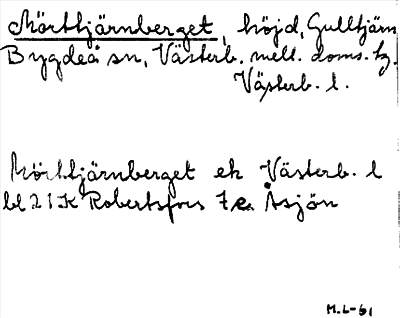 Mörttjärnberget, höjd, Gulltjärn
Bygdeå sn, Västerb. mell. doms. tg.
Västerb. l.
Mörttjärnberget ek Västerb. l
bl 21K Robertsfors 7e Åsjön
M.L-61